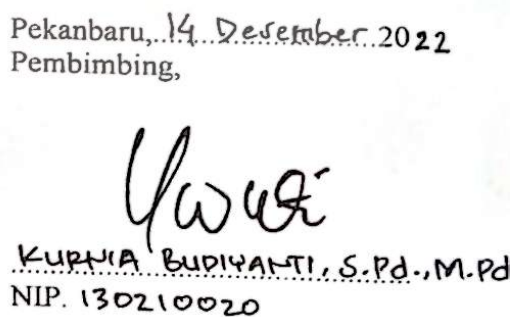 Pekanbaru, 14 Desember 2022
Pembimbing,
KURNIA BUDIYANTI, S.Pd., M.Pd
NIP. 130210020